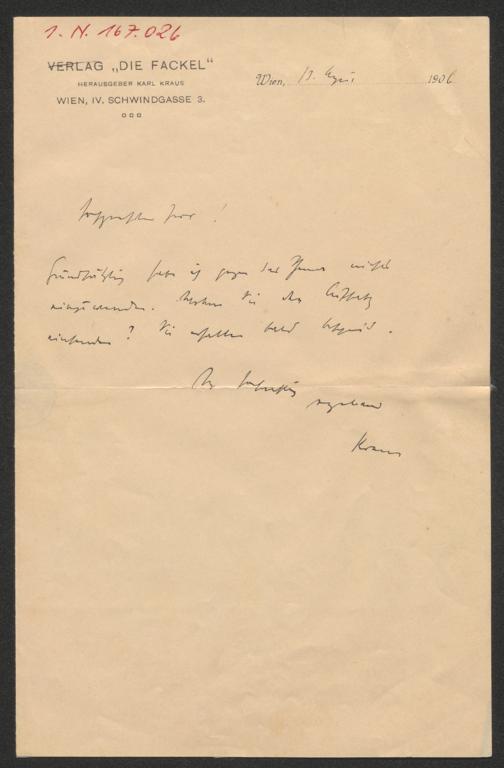 I. N. 167.026
VERLAG „DIE FACKEL“
HERAUSGEBER KARL KRAUS
WIEN, IV. SCHWINDGASSE 3.
Wien, 17. April 1906
Sehr geehrter Herr!
Grundsätzlich habe ich gegen das Thema nichts
einzuwenden. Wollen Sie den Aufsatz
einsenden? Sie erhalten bald Bescheid.
ergebener
Kraus